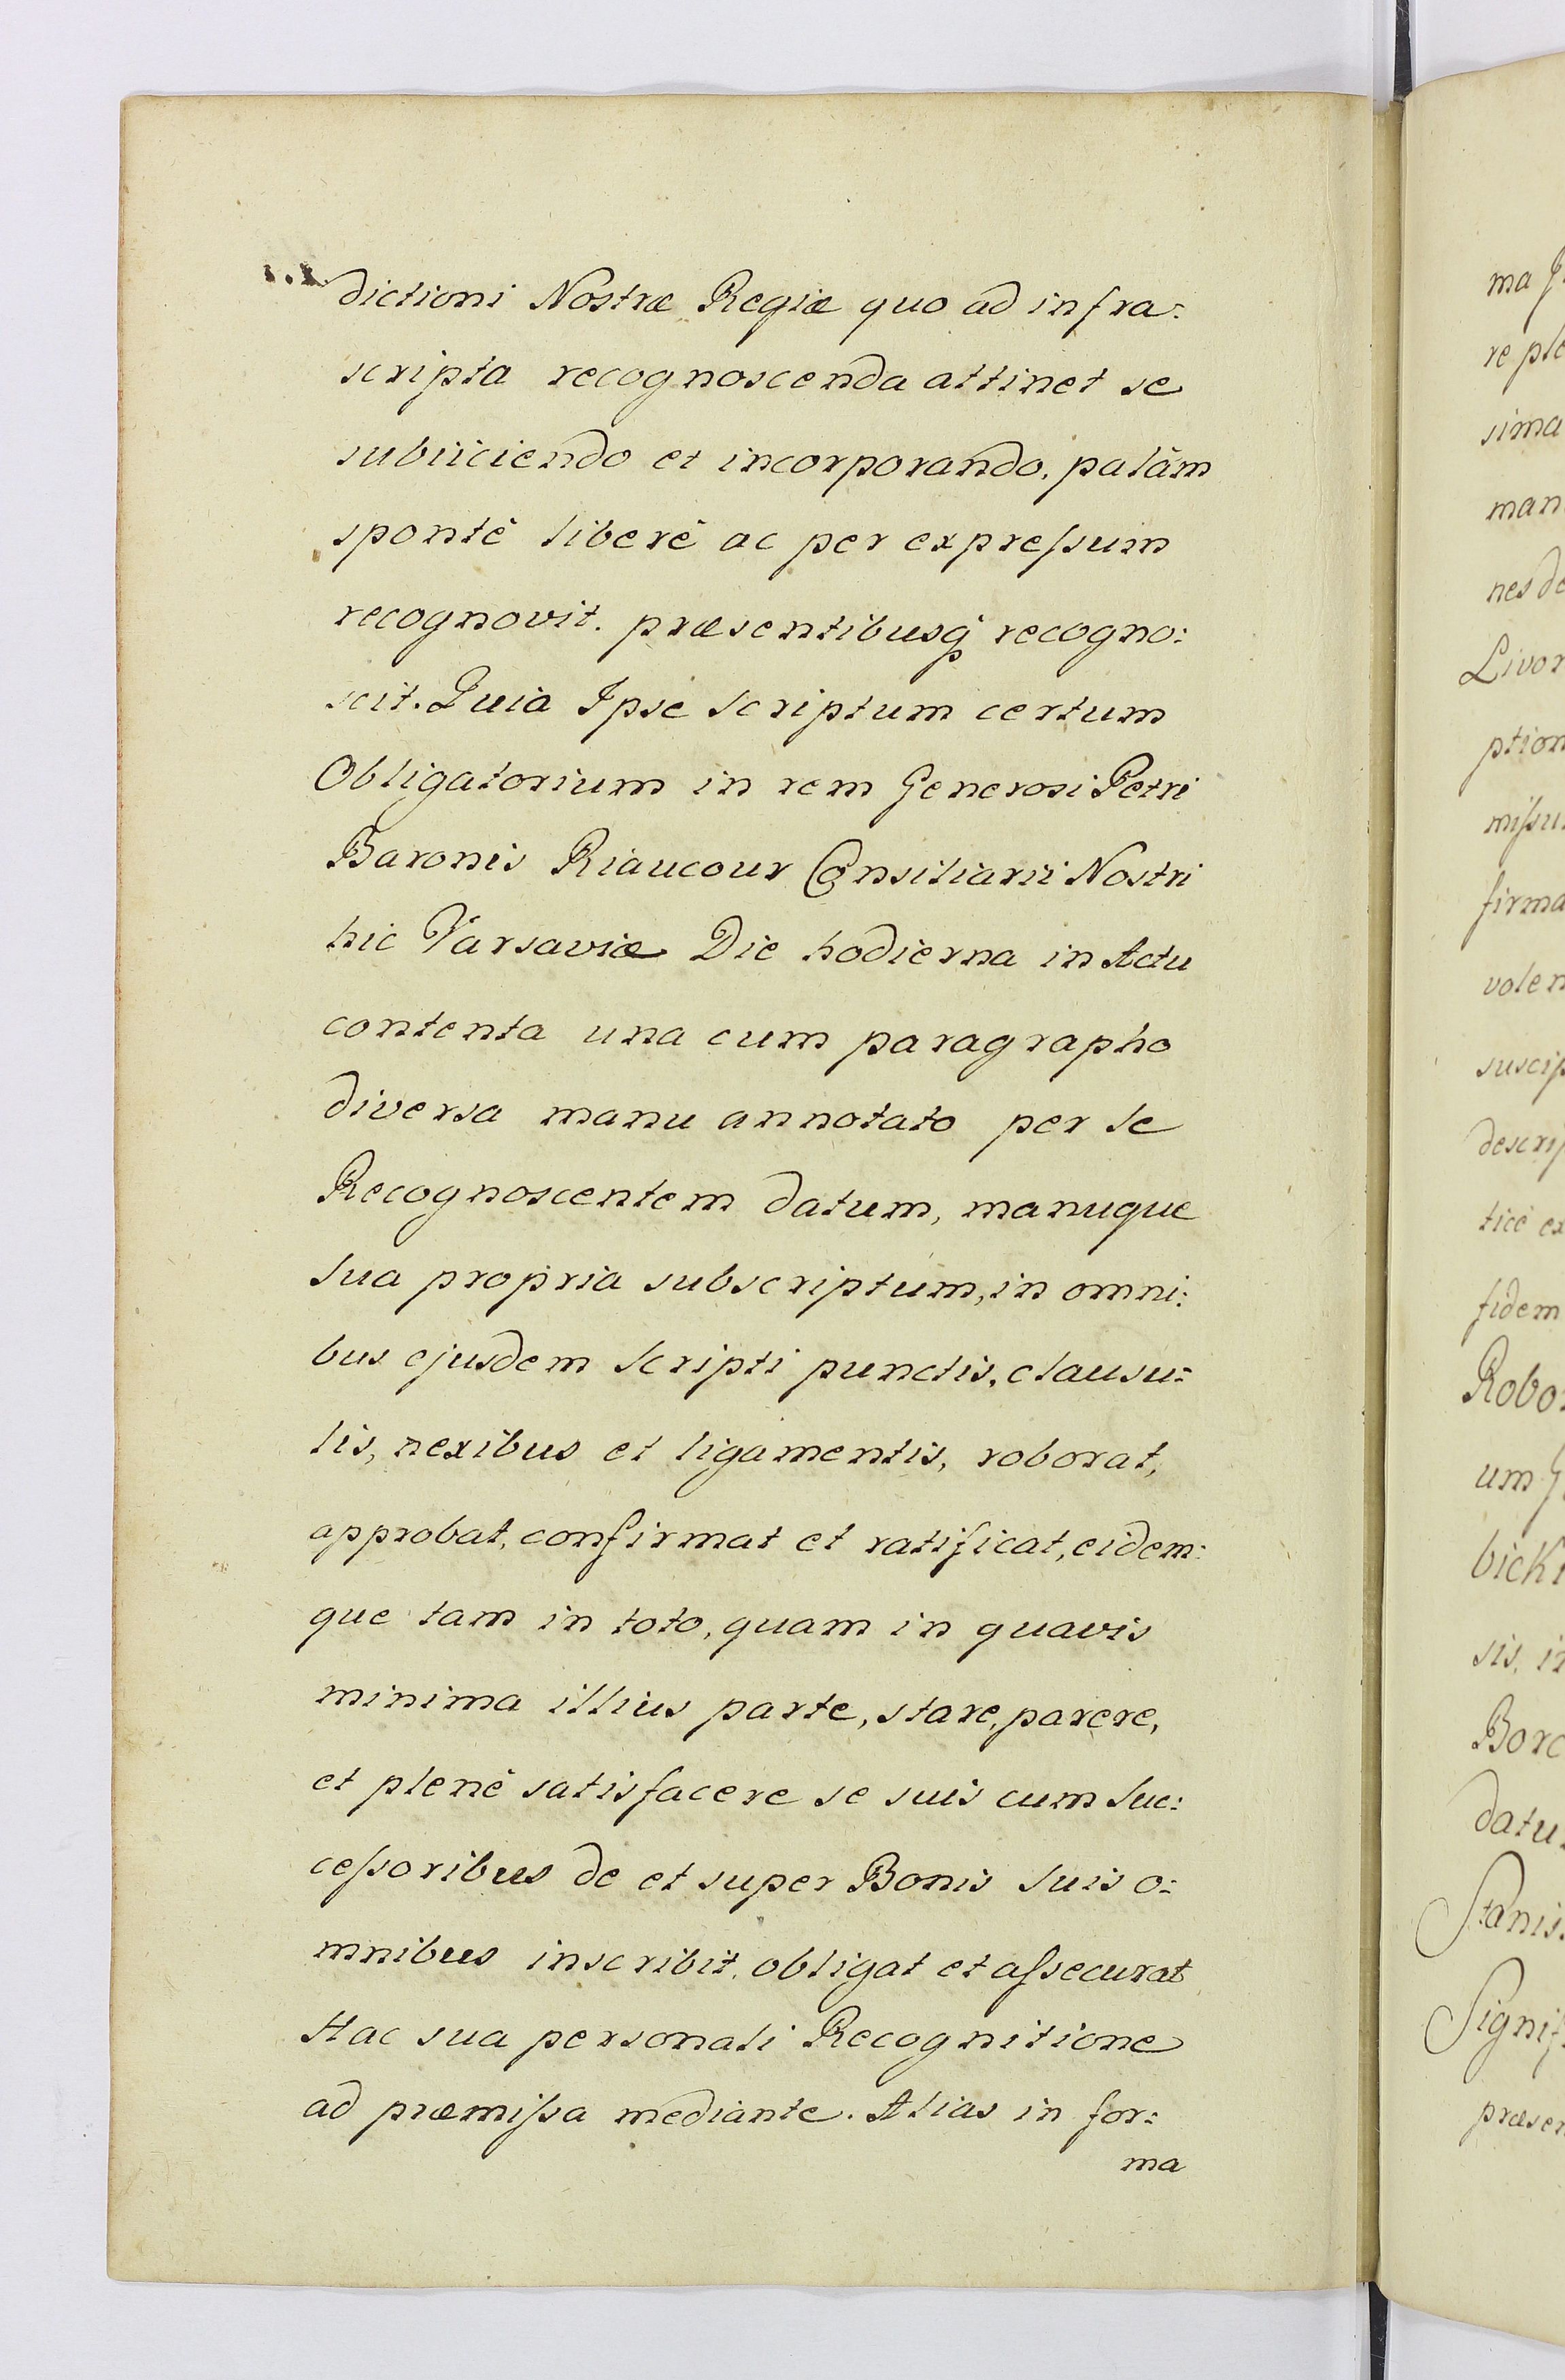 dictioni Nostræ Regiæ quo ad infra:
scripta recognoscenda attinet se
subiiciendo et incorporando, palàm
spontè liberè ac per expreſsum
recognovit. præsentibusq₃ recogno:
scit. Quia Ipse scriptum certum
Obligatorium in rem Generosi Petri
Baronis Riaucour Consiliarii Nostri
hic Varsaviæ Die hodierna in Actu
contenta una cum paragrapho
diversa manu annotato per se
Recognoscentem datum, manuque
sua propria subscriptum, in omni:
bus ejusdem scripti punctis, clausu:
lis, nexibus et ligamentis, roborat,
approbat, confirmat et ratificat, eidem:
que tam in toto, quam in quavis
minima illius parte, stare, parere,
et plenè satisfacere se suis cum suc:
ceſsoribus de et super Bonis suis o:
mnibus inscribit, obligat et aſsecurat
Hac sua personali Recognitione
ad præmiſsa mediante. Alias in for:
ma
ma
re ple
sima
man
nes de
Livon
ption
miſsu
firma
volen
suscip
descrip
ticè ex
fidem
Robo:
um G
bicki
sis, in
Borc
datu
Stanis
Signif
præsen